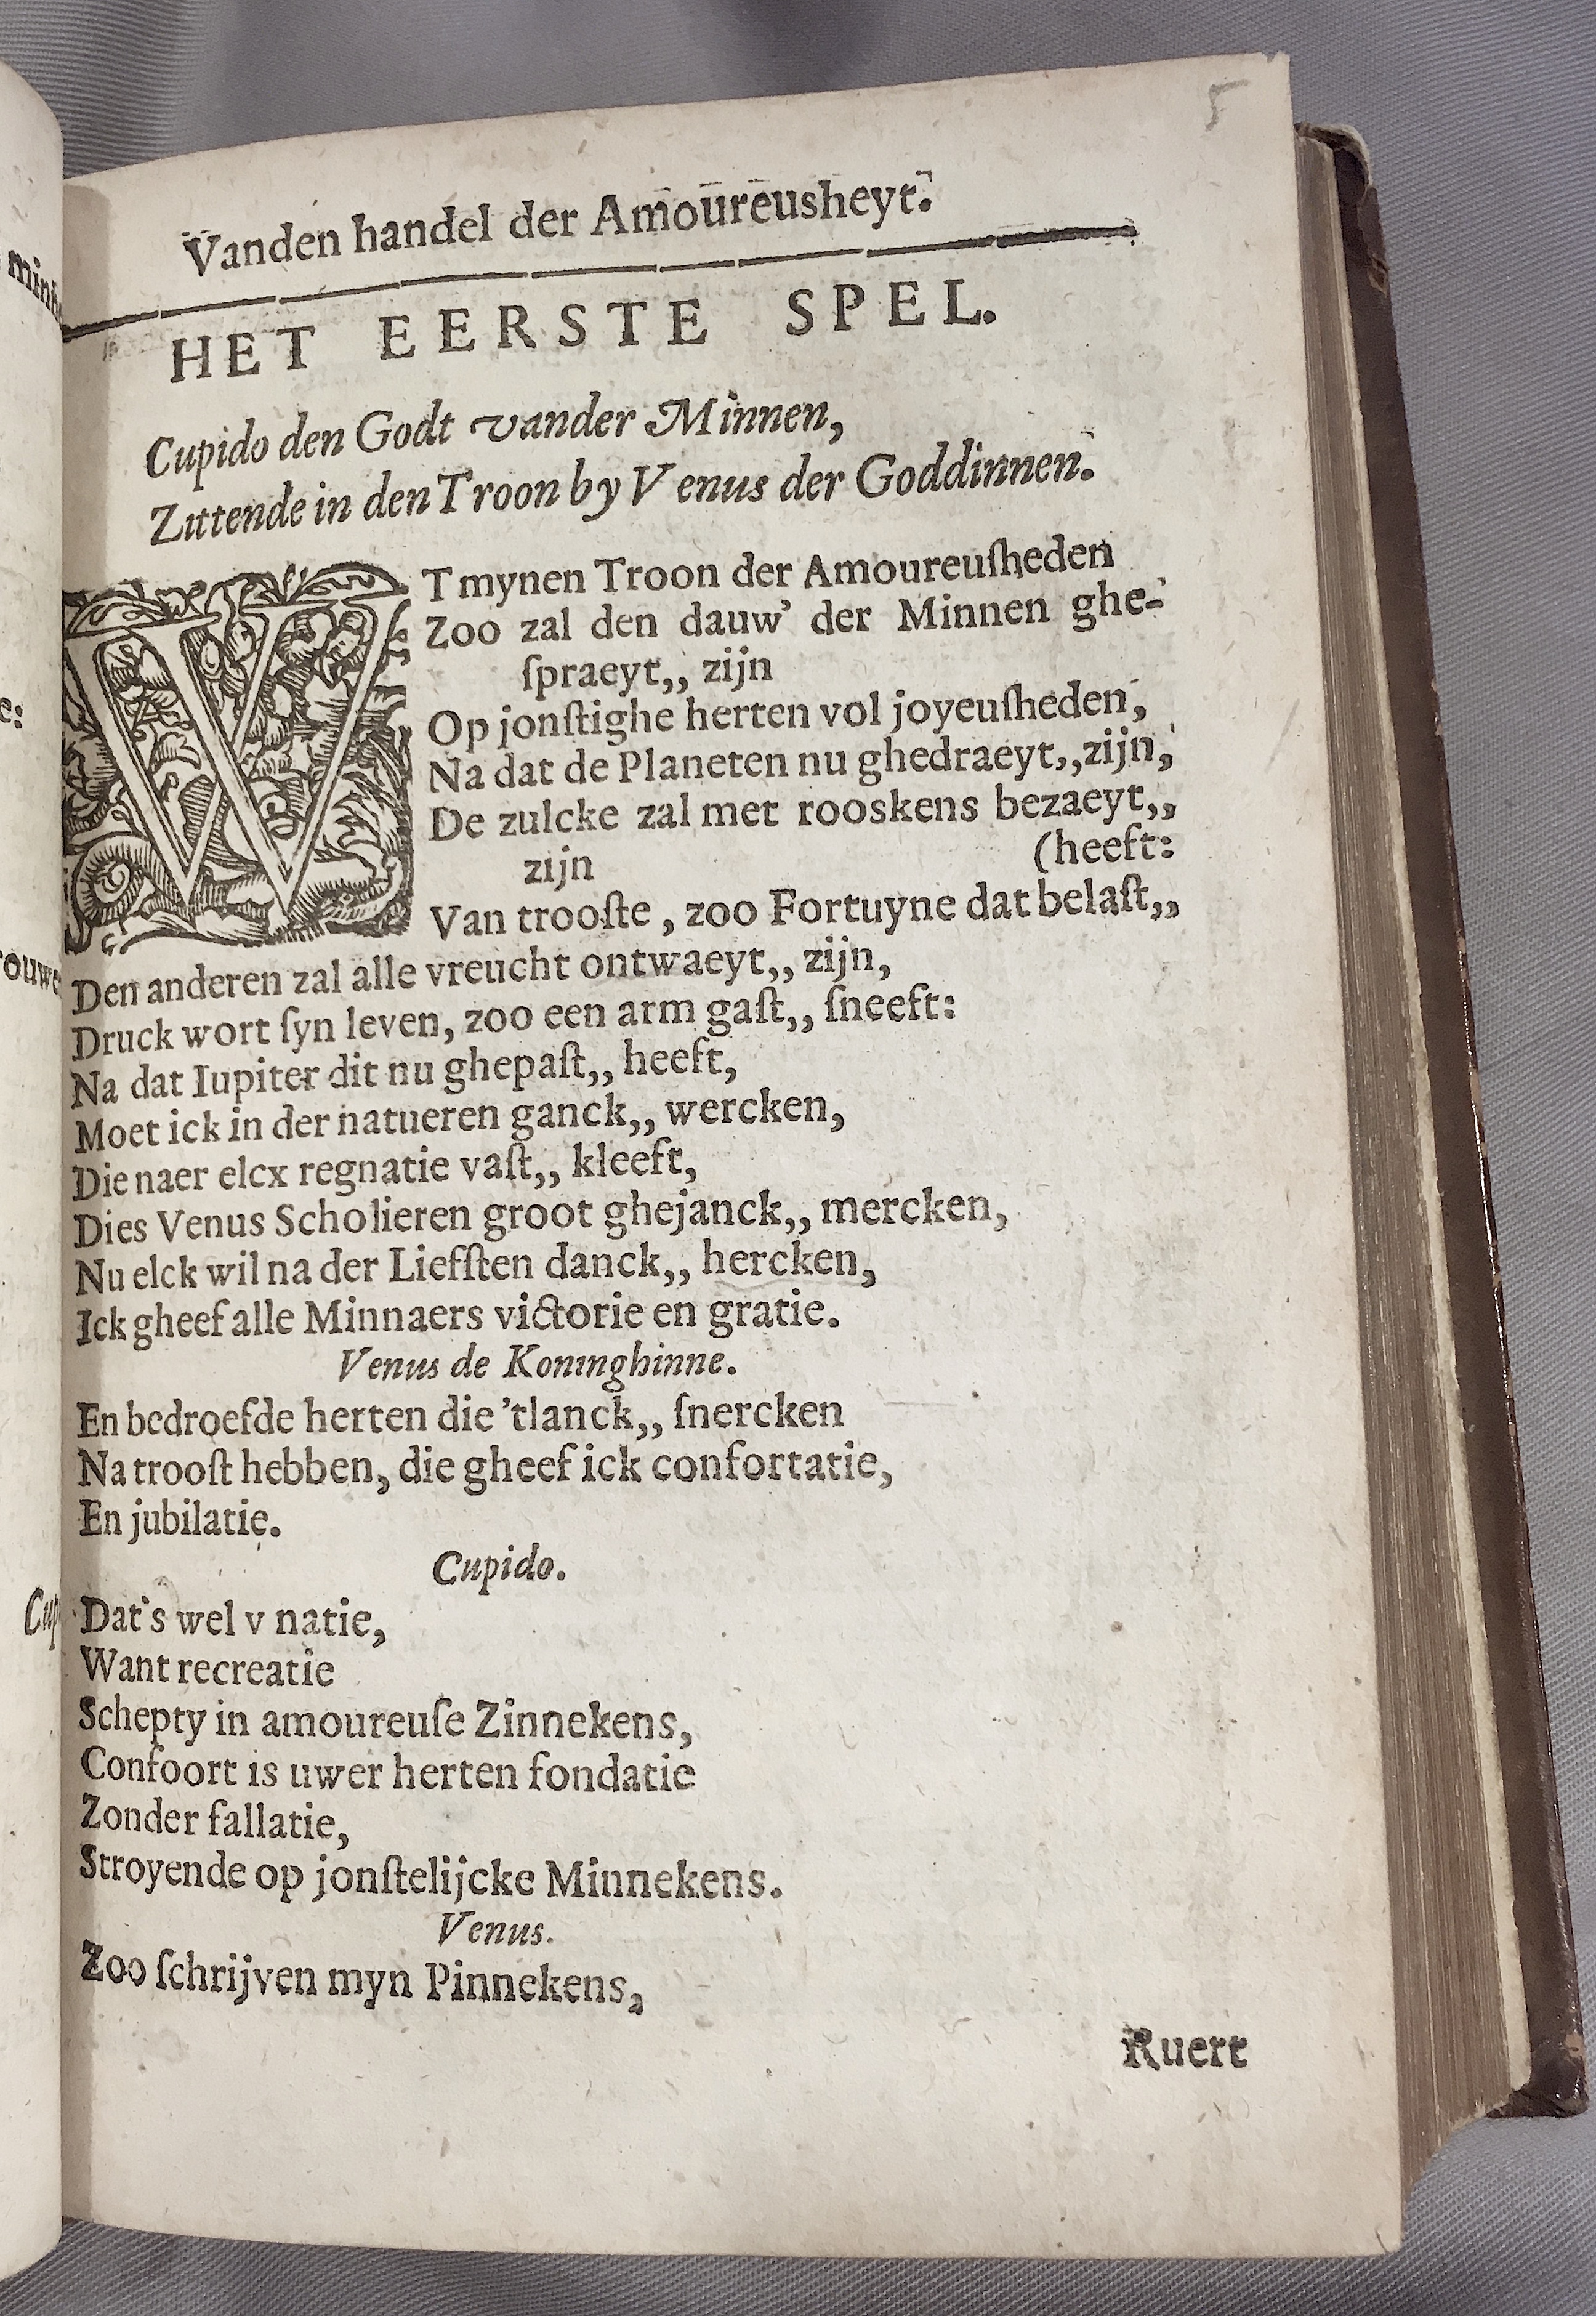 5
Vanden handel der Amoureusheyt.
HET EERSTE SPEL.
Cupido den Godt vander Minnen,
Zittende in den Troon by Venus der Goddinnen.
WT mynen Troon der Amoureuſheden
Zoo zal den dauw' der Minnen ghe-
ſpraeyt,, zijn
Op jonſtighe herten vol joyeuſheden,
Na dat de Planeten nu ghedraeyt,,zijn,
De zulcke zal met rooskens bezaeyt,,
zijn (heeft:
Van trooſte, zoo Fortuyne dat belaſt,,
Den anderen zal alle vreucht ontwaeyt,, zijn,
Druck wort ſyn leven, zoo een arm gaſt,, ſneeft:
Na dat Iupiter dit nu ghepaſt,, heeft,
Moet ick in der natueren ganck,, wercken,
Die naer elcx regnatie vaſt,, kleeft,
Dies Venus Scholieren groot ghejanck,, mercken,
Nu elck wil na der Liefſten danck,, hercken,
Ick gheef alle Minnaers victorie en gratie.
Venus de Koninghinne.
En bedroefde herten die 'tlanck,, ſnercken
Na trooſt hebben, die gheef ick confortatie,
En jubilatie.
Cupido.
Dat's wel v natie,
Want recreatie
Schepty in amoureuſe Zinnekens,
Confoort is uwer herten fondatie
Zonder fallatie,
Stroyende op jonſtelijcke Minnekens.
Venus.
Zoo ſchrijven myn Pinnekens,
Ruert